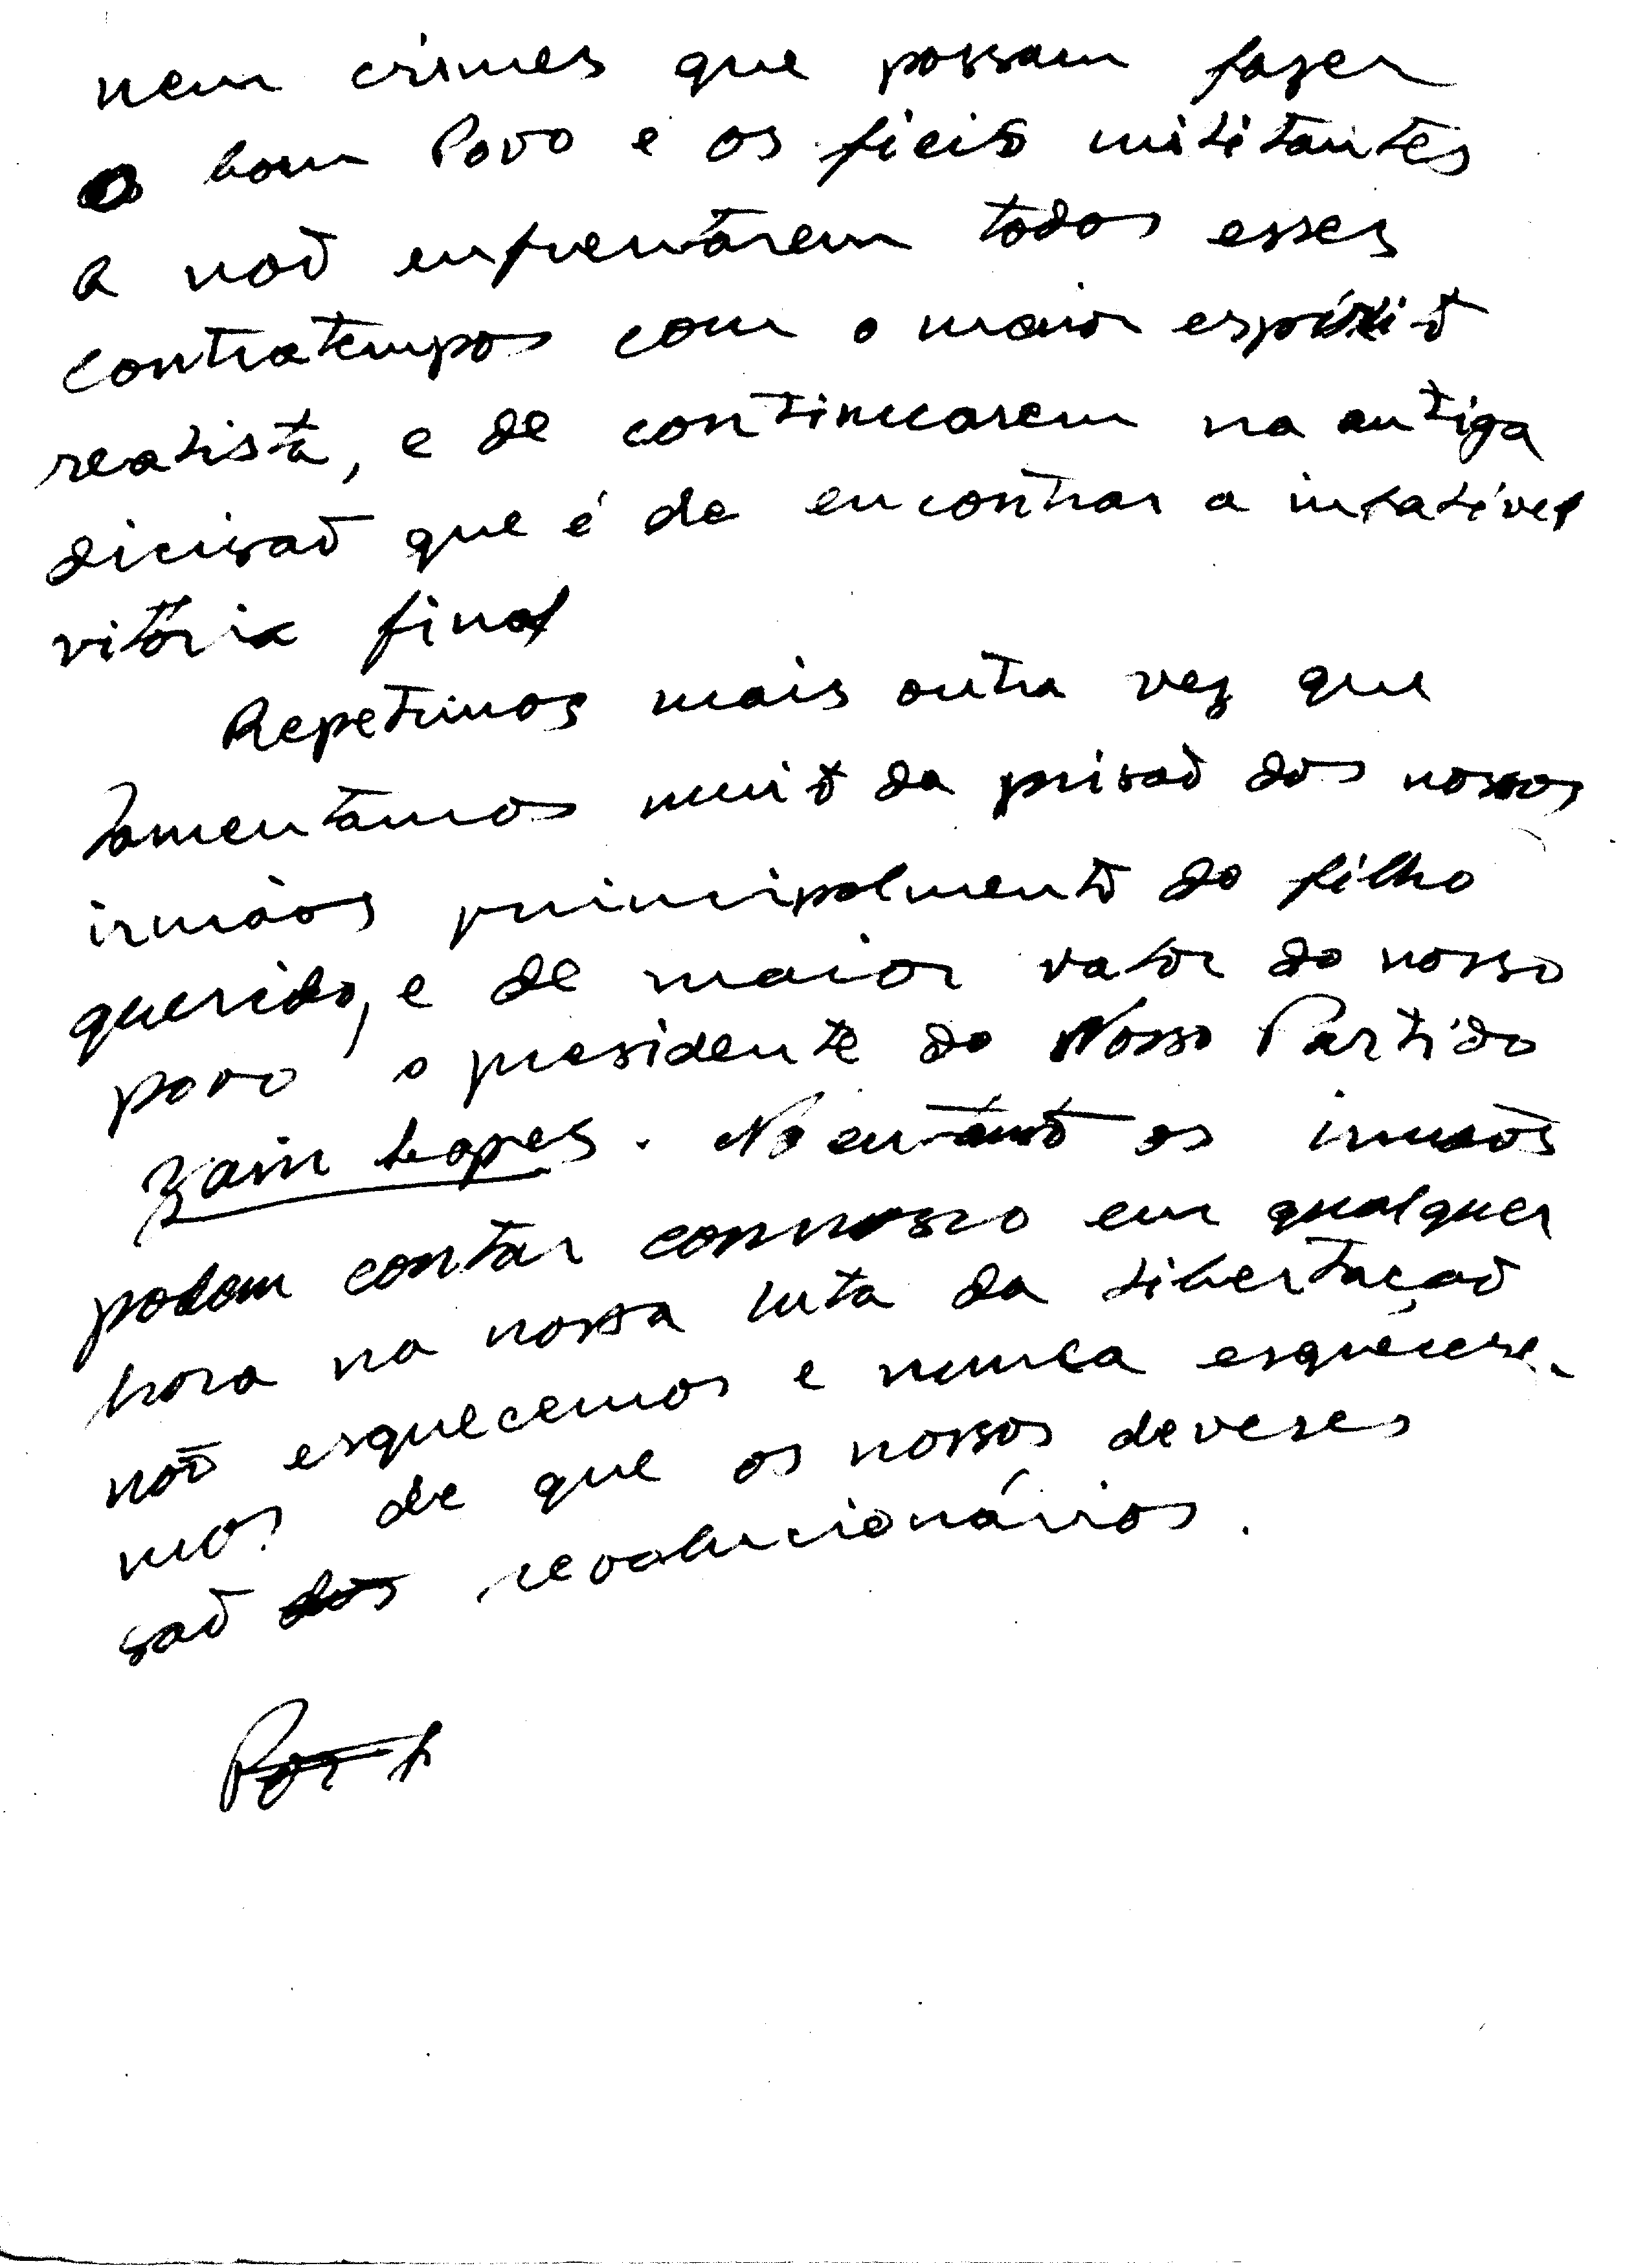 nem crimes que possam fazer
o bom Povo e os fieis militantes
a não enfrentarem todos esses
contratempos com o maior espírito
realista, e de continuarem na antiga
dicisão que é de encontrar a infalível
vitória final
Repetimos mais outra vez que
lamentamos muito da prisão dos nossos
irmãos principalmente do filho
querido, e de maior valor do nosso
povo o presidente do Nosso Partido
Zain Lopes. No entanto os irmãos
podem contar connosco em qualquer
hora na nossa luta da libertação
não esquecemos e nunca esquecere-
mos de que os nossos deveres
são dos revolucionários.